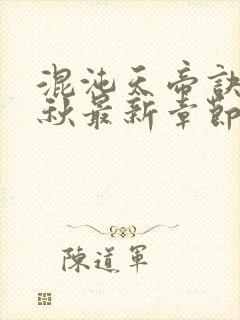 混沌天帝訣
秋最新章節
陳道軍